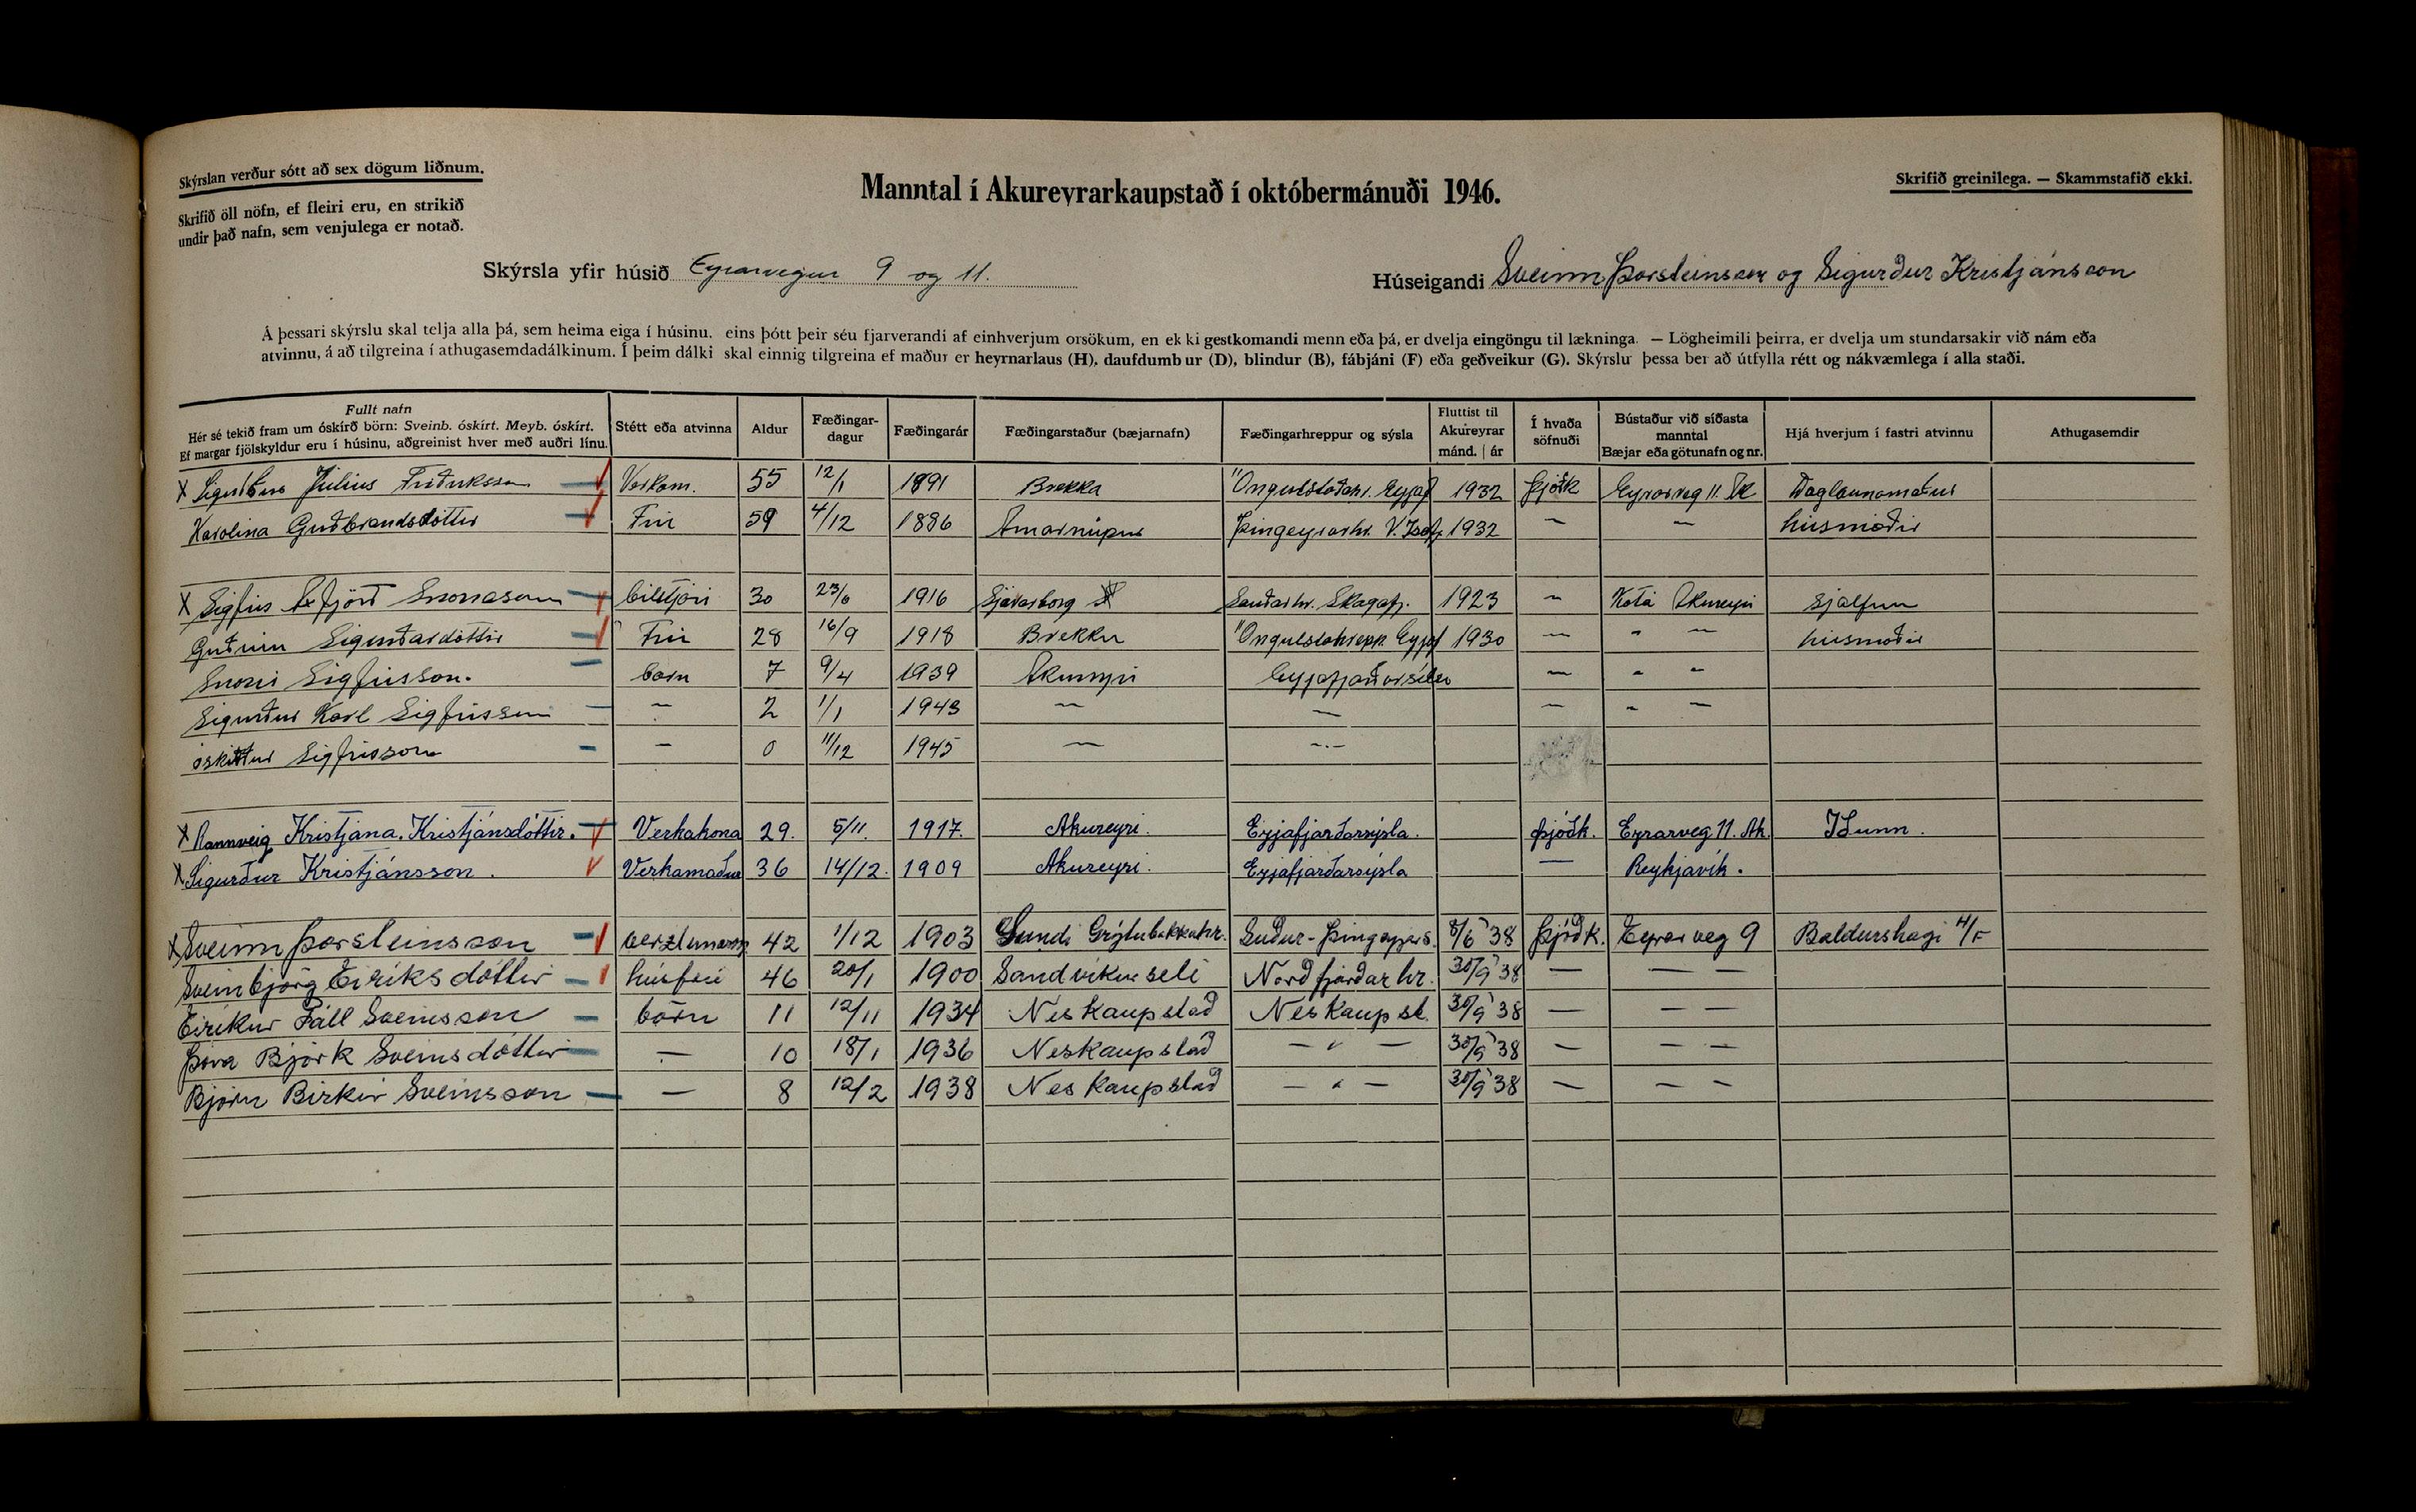 Skýrslan verður sótt að sex dögum liðnum.
Skrifið öll nöfn, ef fleiri eru, en strikið
undir það nafn, sem venjulega er notað.
Manntal í Akureyrarkaupstað í októbermánuði 1946.
Skrifið greinilega. — Skammstafið ekki.
Skýrsla yfir húsið Eyrarvegur 9 og 11.
Húseigandi Sveinn Þorsteinsson og Sigurður Kristjánsson
Á þessari skýrslu skal telja alla þá, sem heima eiga í húsinu, eins þótt þeir séu fjarverandi af einhverjum orsökum, en ekki gestkomandi menn eða þá, er dvelja eingöngu til lækninga. — Lögheimili þeirra, er dvelja um stundarsakir við nám eða
atvinnu, á að tilgreina í athugasemdadálkinum. Í þeim dálki skal einnig tilgreina ef maður er heyrnarlaus (H), daufdumbur (D), blindur (B), fábjáni (F) eða geðveikur (G). Skýrslu þessa ber að útfylla rétt og nákvæmlega í alla staði.
Fullt nafn
Hér sé tekið fram um óskírð börn: Sveinb. óskírt. Meyb. óskírt.
Ef margar fjölskyldur eru í húsinu, aðgreinist hver með auðri línu.
Stétt eða atvinna
Aldur
Fæðingar-
dagur
Fæðingarár
Fæðingarstaður (bæjarnafn)
Fæðingarhreppur og sýsla
Fluttist til
Akureyrar
mánd. | ár
Í hvaða
söfnuði
Bústaður við síðasta
manntal
Bæjar eða götunafn og nr.
Hjá hverjum í fastri atvinnu
Athugasemdir
X Sigurður Júlíus Friðriksson Verkam. 55 12/1 1891 Brekka Öngulstaðahr. Eyjaf 1932 Þjóðk Eyrarveg 11. Ak Daglaunamaður
Karolína Guðbrandsdóttir Frú 59 4/12 1886 Arnarnúpur Þingeyrarhr. V. Ísafj 1932 — — húsmóðir
X Sigfús Axfjörð Snorrason bílstjóri 30 23/6 1916 Sjávarborg Sauðárhr. Skagafj. 1923 — Kotá Akureyri Sjálfum
Guðrún Sigurðardóttir Frú 28 16/9 1918 Brekku Öngulstahrepp. Eyjaf 1930 — " — húsmóðir
Snorri Sigfússon. barn 7 9/4 1939 Akureyri Eyjafjarðarsíslu — " "
Sigurður Karl Sigfússon — 2 1/1 1943 — — — " —
óskírður Sigfússon — 0 11/12 1945 — —
X Rannveig Kristjana. Kristjánsdóttir. Verkakona 29. 5/11. 1917. Akureyri. Eyjafjarðarsýsla. Þjóðk. Eyrarveg 11. Ak. Iðunn.
X Sigurður Kristjánsson. Verkamaður 36 14/12. 1909 Akureyri. Eyjafjarðarsýsla — Reykjavík.
X Sveinn Þorsteinsson verzlunarm 42 1/12 1903 Lundi Grýtubakkahr. Suður-Þingeyjars. 8/6 '38 Þjóðk. Eyrarveg 9 Baldurshagi H/F
Sveinbjörg Eiríksdóttir húsfrú 46 20/1 1900 Sandvíkurseli Norðfjarðarhr. 30/9 '38 — — —
Eiríkur Páll Sveinsson börn 11 12/11 1934 Neskaupstað Neskaupst. 30/9 '38 — — —
Þóra Björk Sveinsdóttir — 10 18/1 1936 Neskaupstað — " — 30/9 '38 — — —
Björn Birkir Sveinsson — 8 12/2 1938 Neskaupstað — " — 30/9 '38 — — —